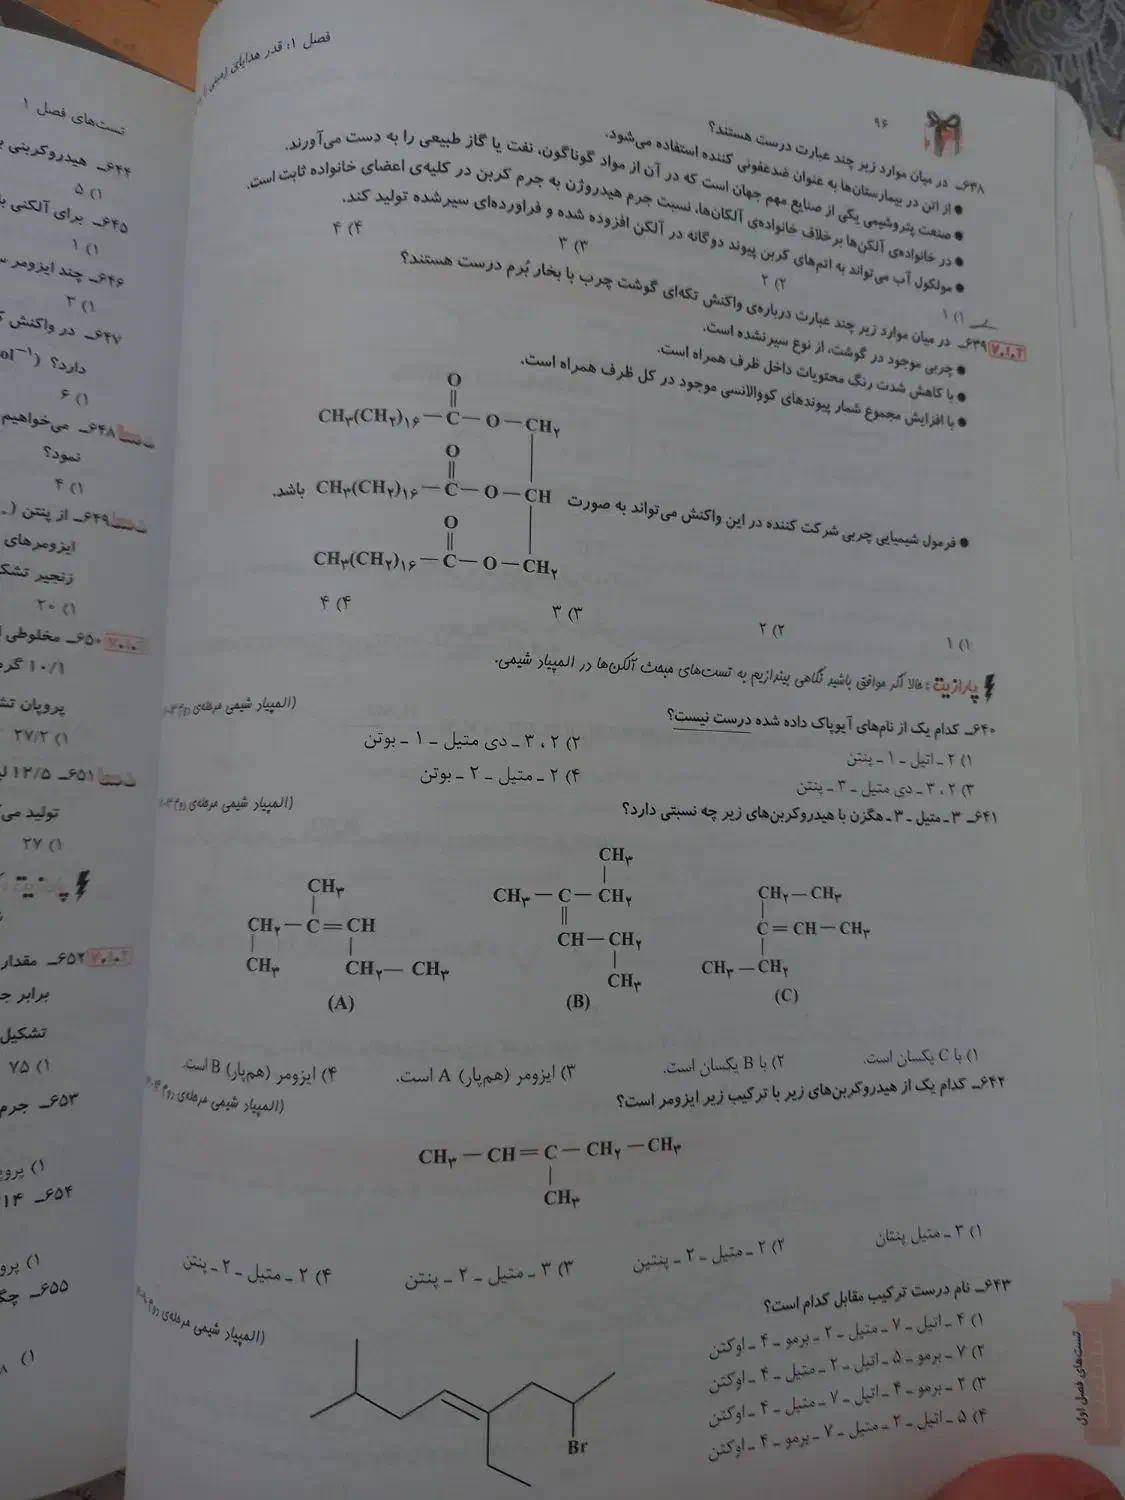 فصل ۱: قدر هدایای زمینی را
۹۶
۶۳۸ـ در میان موارد زیر چند عبارت درست هستند؟
● از اتن در بیمارستان‌ها به عنوان ضدعفونی کننده استفاده می‌شود.
● صنعت پتروشیمی یکی از صنایع مهم جهان است که در آن از مواد گوناگون، نفت یا گاز طبیعی را به دست می‌آورند.
● در خانواده‌ی آلکن‌ها برخلاف خانواده‌ی آلکان‌ها، نسبت جرم هیدروژن به جرم کربن در کلیه‌ی اعضای خانواده ثابت است.
● مولکول آب می‌تواند به اتم‌های کربن پیوند دوگانه در آلکن افزوده شده و فراورده‌ای سیرشده تولید کند.
۱) ۱ ۲) ۲ ۳) ۳ ۴) ۴
۶۳۹ـ در میان موارد زیر چند عبارت درباره‌ی واکنش تکه‌ای گوشت چرب با بخار بُرم درست هستند؟
● چربی موجود در گوشت، از نوع سیرنشده است.
● با کاهش شدت رنگ محتویات داخل ظرف همراه است.
● با افزایش مجموع شمار پیوندهای کووالانسی موجود در کل ظرف همراه است.
O
CH۳(CH۲)۱۶ — C — O — CH۲
O
● فرمول شیمیایی چربی شرکت کننده در این واکنش می‌تواند به صورت CH۳(CH۲)۱۶ — C — O — CH باشد.
O
CH۳(CH۲)۱۶ — C — O — CH۲
۱) ۱ ۲) ۲ ۳) ۳ ۴) ۴
پارازیت: حالا اگر موافق باشید نگاهی بیندازیم به تست‌های مبحث آلکن‌ها در المپیاد شیمی.
۶۴۰ـ کدام یک از نام‌های آیوپاک داده شده درست نیست؟ (المپیاد شیمی مرحله‌ی
۱) ۲ ـ اتیل ـ ۱ ـ پنتن ۲) ۲ ، ۳ ـ دی متیل ـ ۱ ـ بوتن
۳) ۲ ، ۳ ـ دی متیل ـ ۳ ـ پنتن ۴) ۲ ـ متیل ـ ۲ ـ بوتن
۶۴۱ـ ۳ ـ متیل ـ ۳ ـ هگزن با هیدروکربن‌های زیر چه نسبتی دارد؟ (المپیاد شیمی مرحله‌ی
CH۳
CH۲ — C = CH
CH۳ CH۲ — CH۳
(A)
CH۳
CH۳ — C — CH۲
CH — CH۲
CH۳
(B)
CH۲ — CH۳
C = CH — CH۳
CH۳ — CH۲
(C)
۱) با C یکسان است. ۲) با B یکسان است. ۳) ایزومر (هم‌پار) A است. ۴) ایزومر (هم‌پار) B است.
۶۴۲ـ کدام یک از هیدروکربن‌های زیر با ترکیب زیر ایزومر است؟ (المپیاد شیمی مرحله‌ی
CH۳ — CH = C — CH۲ — CH۳
CH۳
۱) ۳ ـ متیل پنتان ۲) ۲ ـ متیل ـ ۲ ـ پنتین ۳) ۳ ـ متیل ـ ۲ ـ پنتن ۴) ۲ ـ متیل ـ ۲ ـ پنتن
۶۴۳ـ نام درست ترکیب مقابل کدام است؟ (المپیاد شیمی مرحله‌ی
۱) ۴ ـ اتیل ـ ۷ ـ متیل ـ ۲ ـ برمو ـ ۴ ـ اوکتن
۲) ۷ ـ برمو ـ ۵ ـ اتیل ـ ۲ ـ متیل ـ ۴ ـ اوکتن
۳) ۲ ـ برمو ـ ۴ ـ اتیل ـ ۷ ـ متیل ـ ۴ ـ اوکتن
۴) ۵ ـ اتیل ـ ۲ ـ متیل ـ ۷ ـ برمو ـ ۴ ـ اوکتن
Br
تست‌های فصل اول
تست‌های فصل ۱
۶۴۴ـ هیدروکربنی
۱) ۵
۶۴۵ـ برای آلکنی
۱) ۱
۶۴۶ـ چند ایزومر
۱) ۳
۶۴۷ـ در واکنش
دارد؟
۱) ۶
۶۴۸ـ می‌خواهیم
نمود؟
۱) ۴
۶۴۹ـ از پنتن
ایزومرهای
زنجیر
۱) ۲۰
۶۵۰ـ مخلوطی
۱۰/۱
پروپان
۱) ۲۷/۲
۶۵۱ـ ۱۲/۵
تولید
۱) ۲۷
پارازیت
۶۵۲ـ مقدار
برابر
تشکیل
۱) ۷۵
۶۵۳ـ جرم
۱)
۶۵۴ـ ۱۴
۱)
۶۵۵ـ
۱)